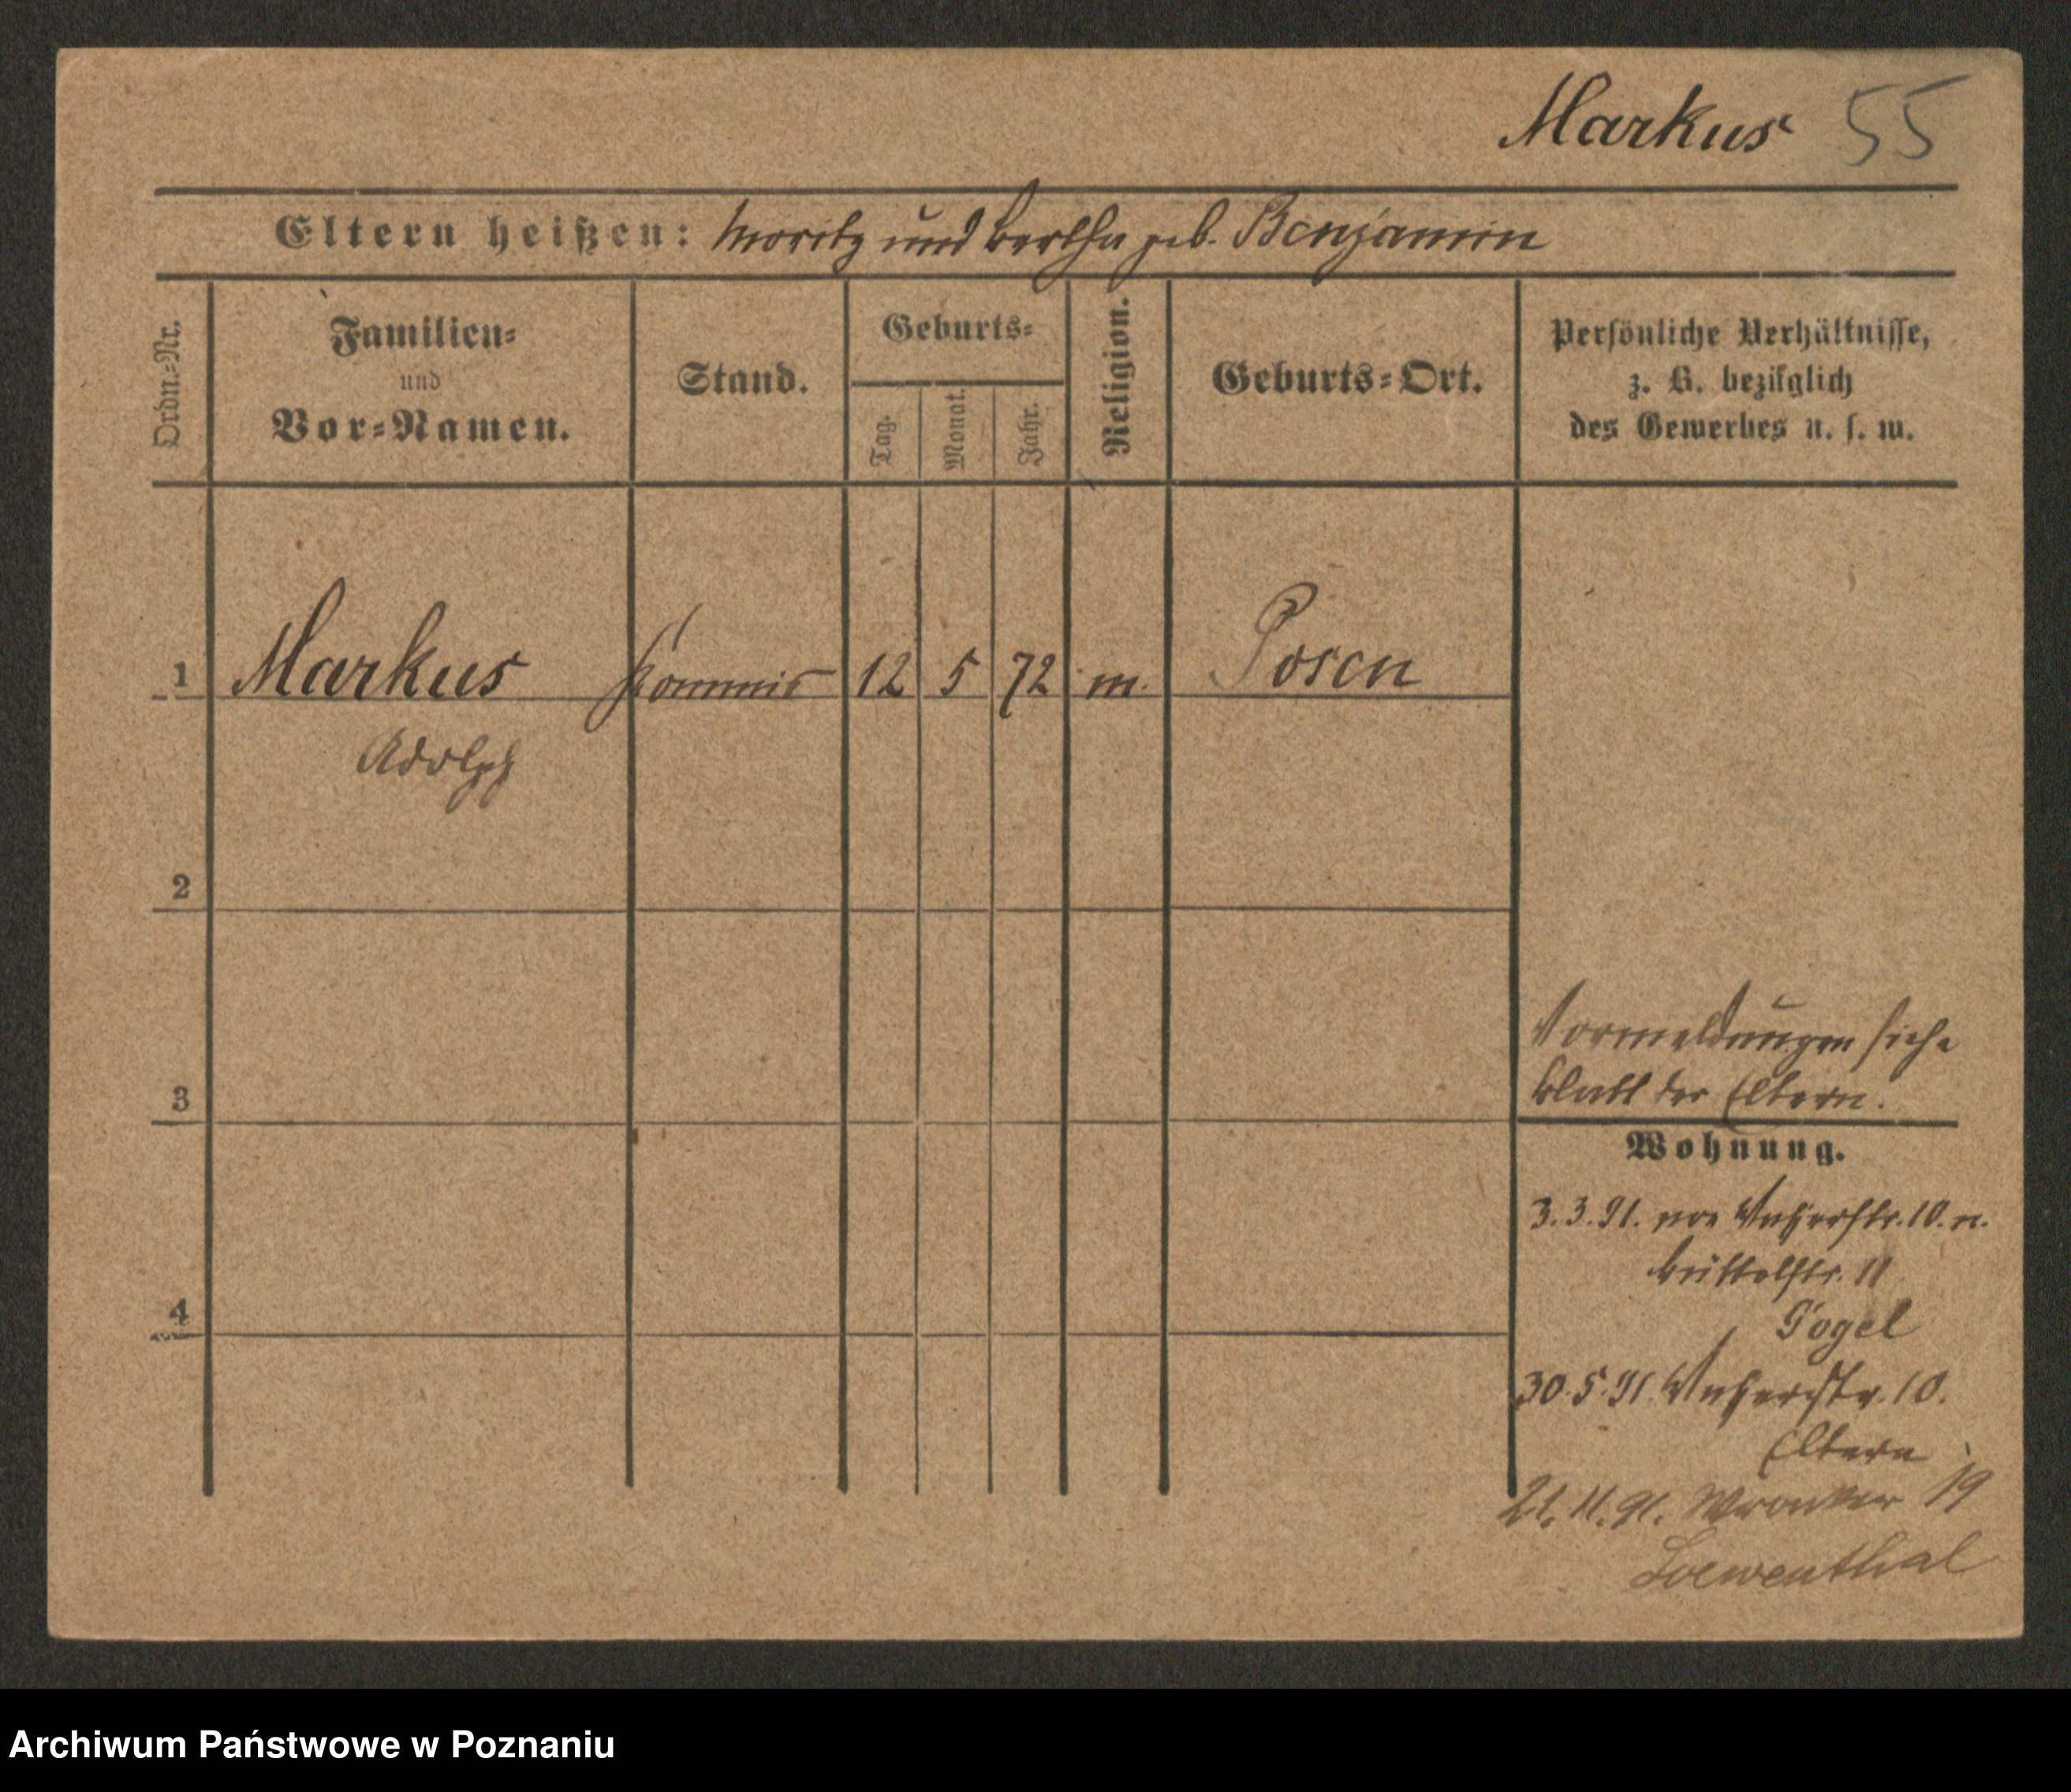 Markus 55
Eltern heißen: Moritz und Bertha geb. Benjamin
Ordn.-Nr.
Familien-
und
Vor-Namen.
Stand.
Geburts-
Tag.
Monat.
Jahr.
Religion.
Geburts-Ort.
Persönliche Verhältnisse,
z. B. bezüglich
des Gewerbes u. s. w.
1 Markus Kommis 12 5 72 m. Posen
Adolph
2
3
4
Vormeldungen siehe
Blatt der Eltern.
Wohnung.
3.3.91. von 10. n.
Büttelstr. 11
Vogel
30.5.91. 10.
Eltern
21.11.91. Wronker 19
Loewenthal
Archiwum Państwowe w Poznaniu